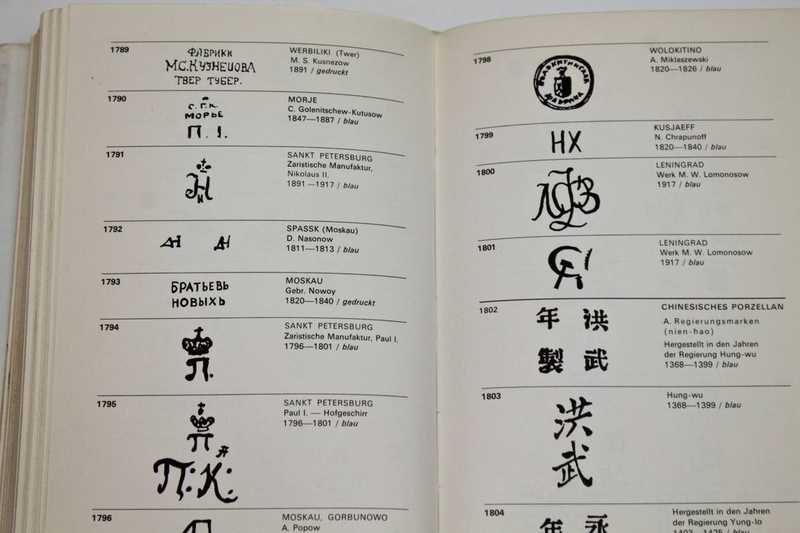 1789
ФАБРИКИ
М.С.КУЗНЕЦОВА
ТВЕР ТУБЕР.
WERBILIKI (Twer)
M. S. Kusnezow
1891 / gedruckt
1790
С.Г.К.
МОРЬЕ
П. 1.
MORJE
C. Golenitschew-Kutusow
1847—1887 / blau
1791
SANKT PETERSBURG
Zaristische Manufaktur,
Nikolaus II.
1891—1917 / blau
1792
SPASSK (Moskau)
D. Nasonow
1811—1813 / blau
1793
БРАТЬЕВЬ
НОВЫХЬ
MOSKAU
Gebr. Nowoy
1820—1840 / gedruckt
1794
П.
SANKT PETERSBURG
Zaristische Manufaktur, Paul I.
1796—1801 / blau
1795
П
П.:К.:
SANKT PETERSBURG
Paul I. — Hofgeschirr
1796—1801 / blau
1796
MOSKAU, GORBUNOWO
A. Popow
1798
WOLOKITINO
A. Miklaszewski
1820—1826 / blau
1799
НХ
KUSJAEFF
N. Chrapunoff
1820—1840 / blau
1800
LENINGRAD
Werk M. W. Lomonosow
1917 / blau
1801
LENINGRAD
Werk M. W. Lomonosow
1917 / blau
1802
年 洪
製 武
CHINESISCHES PORZELLAN
A. Regierungsmarken
(nien-hao)
Hergestellt in den Jahren
der Regierung Hung-wu
1368—1399 / blau
1803
洪
武
Hung-wu
1368—1399 / blau
1804
年 永
Hergestellt in den Jahren
der Regierung Yung-lo
1403—1425 / blau